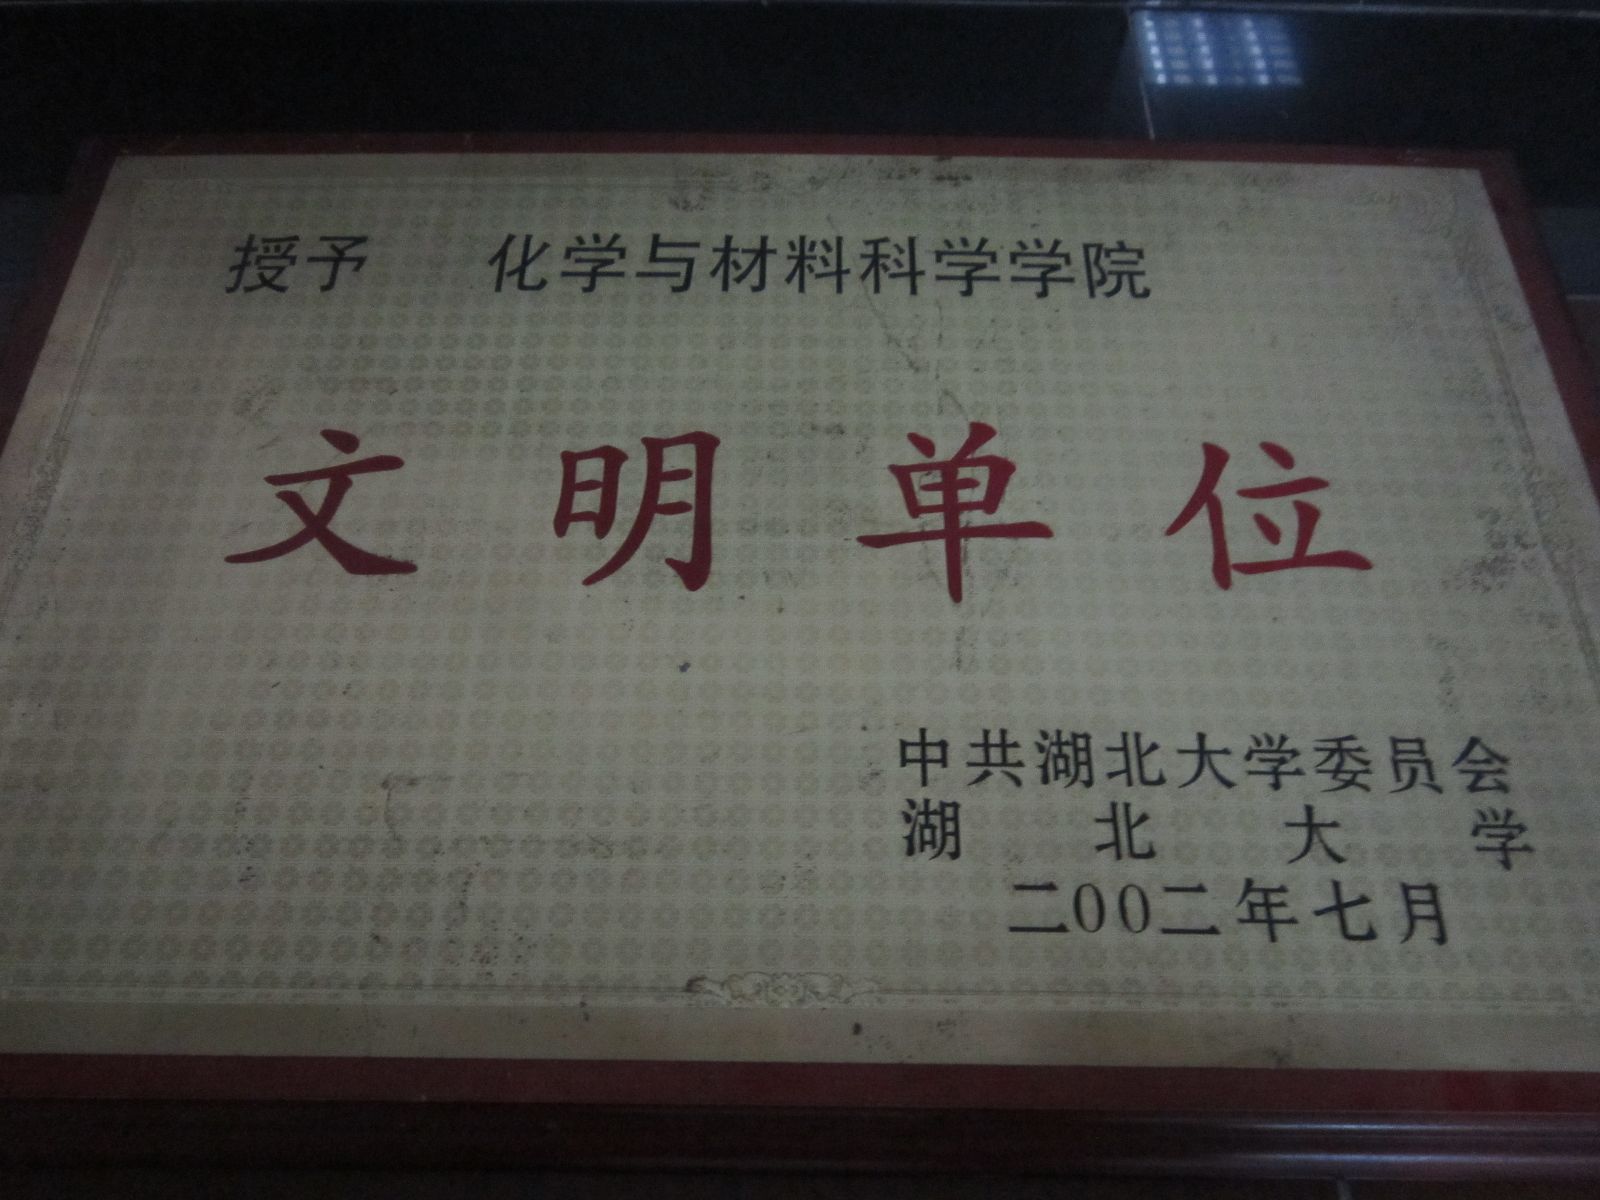 授予 化学与材料科学学院
文明单位
中共湖北大学委员会
湖北大学
二00二年七月